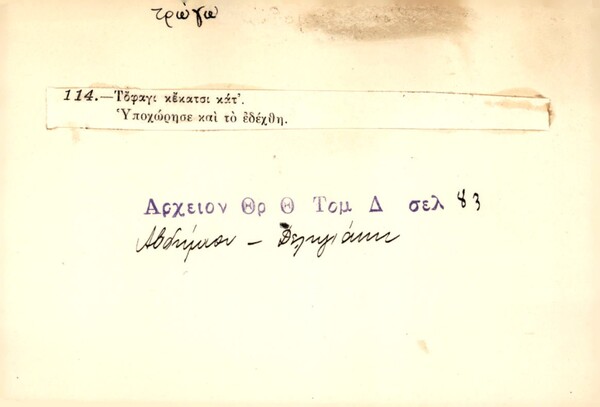 τρώγω
114.—Τὄφαγι κἔκατσι κάτ'.
Ὑποχώρησε καὶ τὸ ἐδέχθη.
Αρχειον Θρ Θ Τομ Δ σελ 83
Αβδήμιον – Δεληγιάννη